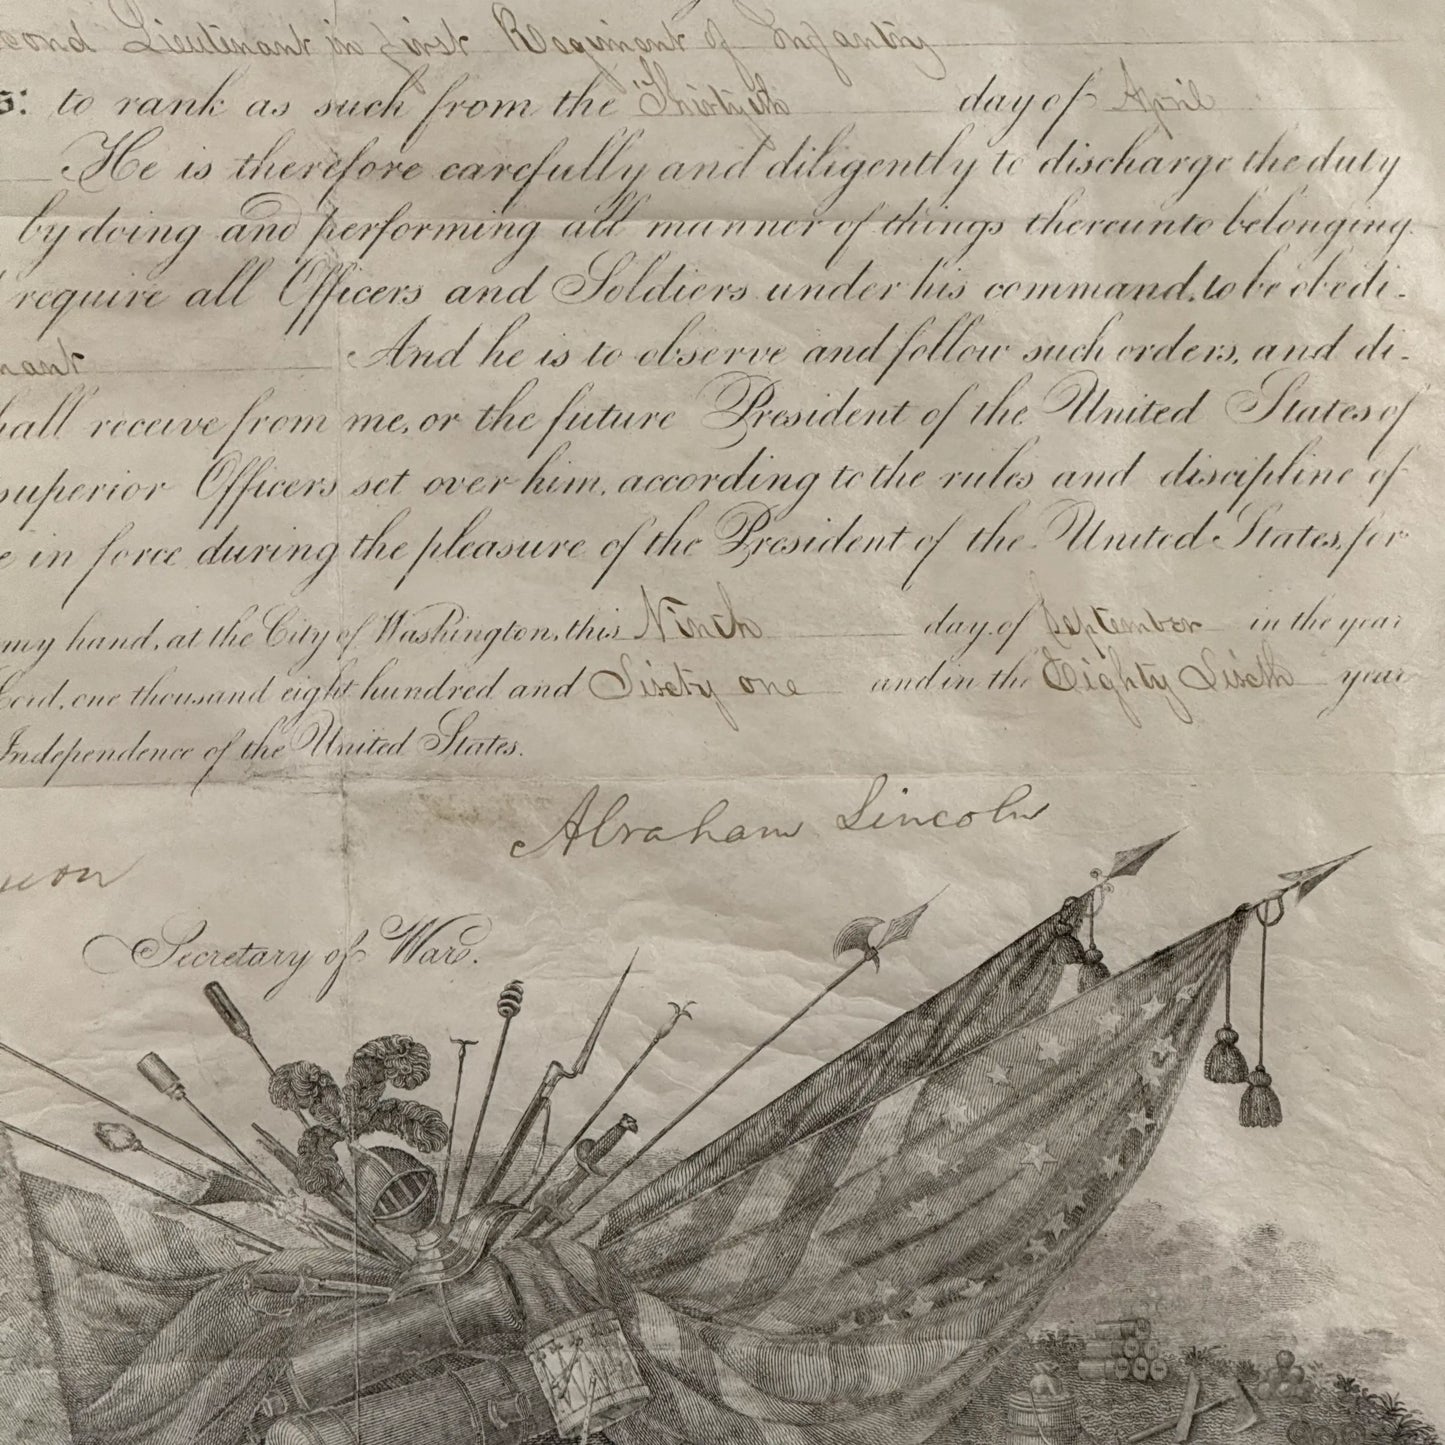 cond Lieutenant in first Regiment of Infantry
s: to rank as such from the Thirtyeth day of April
He is therefore carefully and diligently to discharge the duty
by doing and performing all manner of things thereunto belonging.
require all Officers and Soldiers under his command, to be obedi-
nant And he is to observe and follow such orders, and di-
hall receive from me, or the future President of the United States of
superior Officers set over him, according to the rules and discipline of
e in force during the pleasure of the President of the United States, for
my hand, at the City of Washington, this Ninth day of September in the year
Lord, one thousand eight hundred and Sixty one and in the Eighty Sixth year
Independence of the United States.
Abraham Lincoln
Secretary of War.